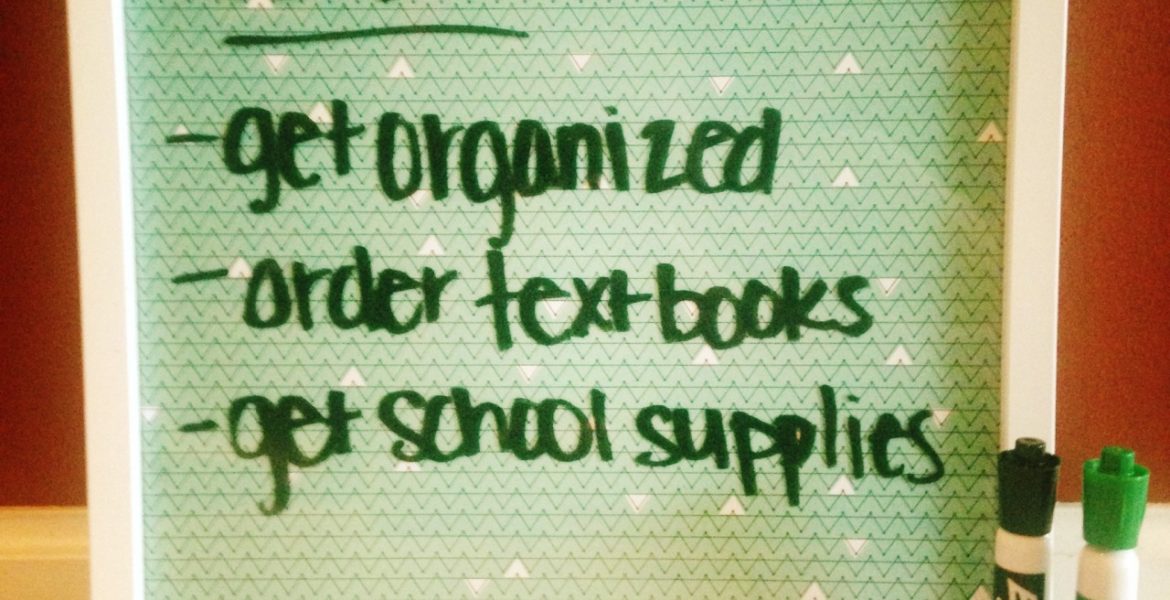 -get organized
-order textbooks
-get school supplies